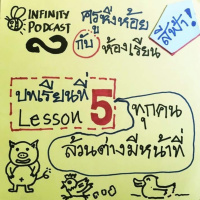 INFINITY
PODCAST
2
ครูหิ่งห้อย
กับ ห้องเรียน
สีฟ้า!
บทเรียนที่
Lesson 5
ทุกคน
ล้วนต่างมีหน้าที่